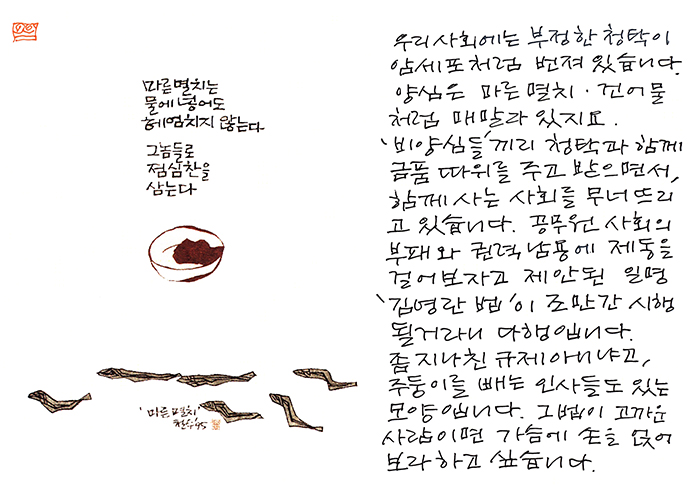 마른멸치는
물에 넣어도
헤엄치지 않는다
그놈들로
점심찬을
삼는다
'마른멸치'
철수 '95
우리 사회에는 부정한 청탁이
암세포처럼 번져 있습니다.
양심은 마른 멸치·건어물
처럼 메말라 있지요.
'비양심들'끼리 청탁과 함께
금품 따위를 주고 받으면서,
함께 사는 사회를 무너뜨리
고 있습니다. 공무원 사회의
부패와 권력남용에 제동을
걸어보자고 제안된 일명
'김영란 법'이 조만간 시행
될거라니 다행입니다.
좀 지나친 규제 아니냐고,
주둥이를 빼는 인사들도 있는
모양입니다. 그법이 고까운
사람이면 가슴에 손을 얹어
보라 하고 싶습니다.